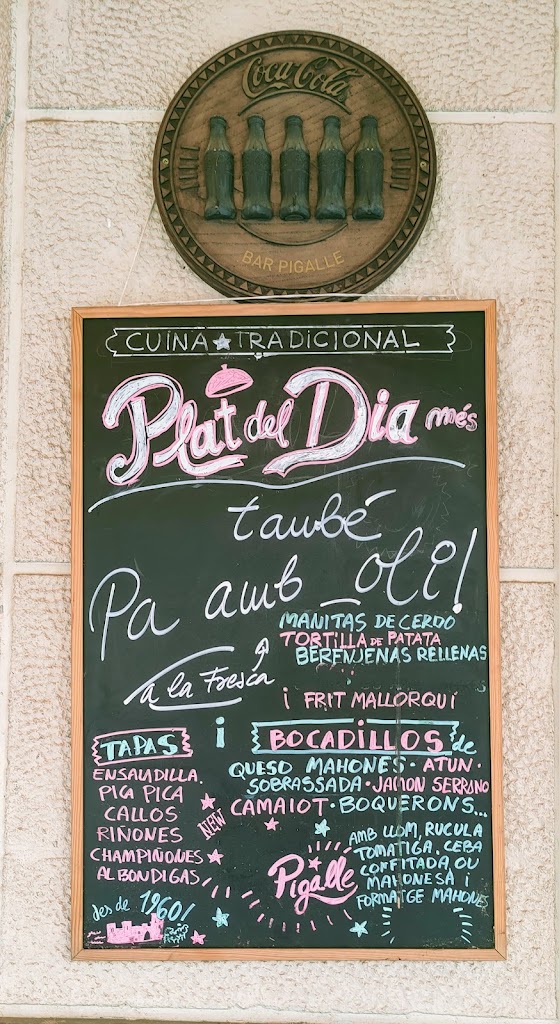 Coca-Cola
BAR PIGALLE
CUINA TRADICIONAL
Plat del Dia més
també
Pa amb oli!
a la Fresca
MANITAS DE CERDO
TORTILLA DE PATATA
BERENJENAS RELLENAS
i FRIT MALLORQUÍ
TAPAS
i
BOCADILLOS de
ENSALADILLA.
PIG PICA
CALLOS
RIÑONES
CHAMPIÑONES
ALBONDIGAS
QUESO MAHONES · ATUN ·
SOBRASSADA · JAMON SERRANO
CAMAIOT · BOQUERONS...
NEW
Pigalle
AMB LLOM, RUCULA
TOMATIGA, CEBA
CONFITADA, OU
MAHONESA i
FORMATGE MAHONES
des de 1960!